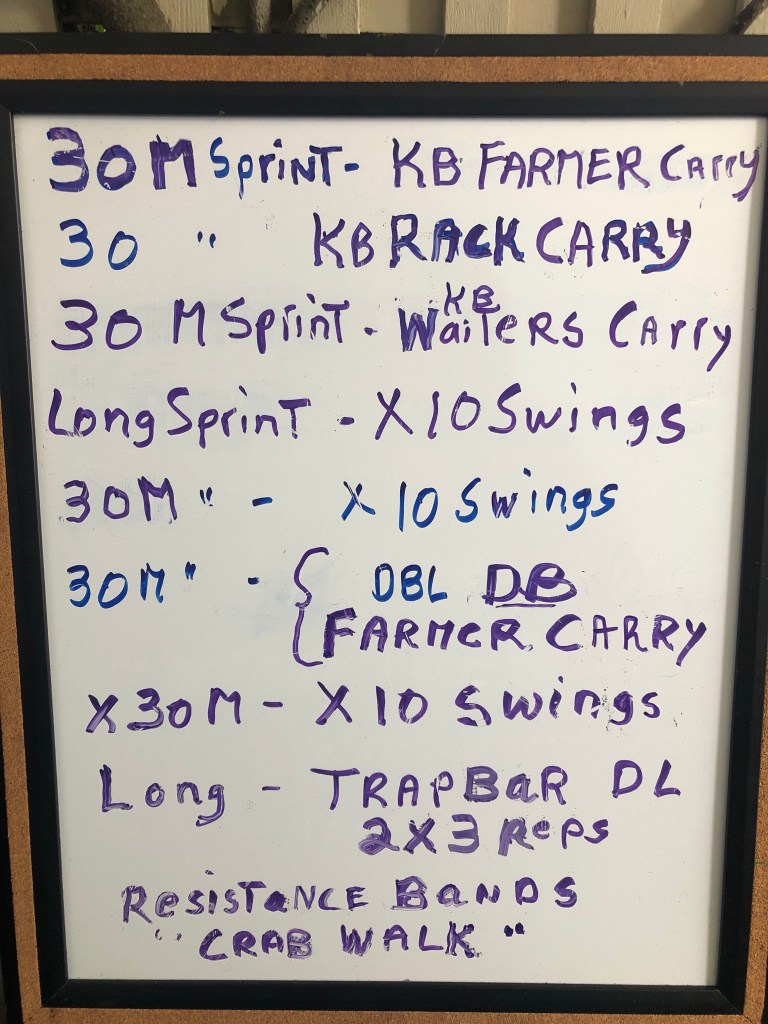 30M Sprint - KB FARMER Carry
30 " KB RACK CARRY
30 M Sprint - KB Waiters Carry
Long Sprint - X 10 Swings
30M " - X 10 Swings
30M " - { DBL DB
FARMER CARRY
X 30M - X 10 Swings
Long - TRAP BaR DL
2X3 Reps
ResisTaNCE BaNDS
" CRAB WALK "